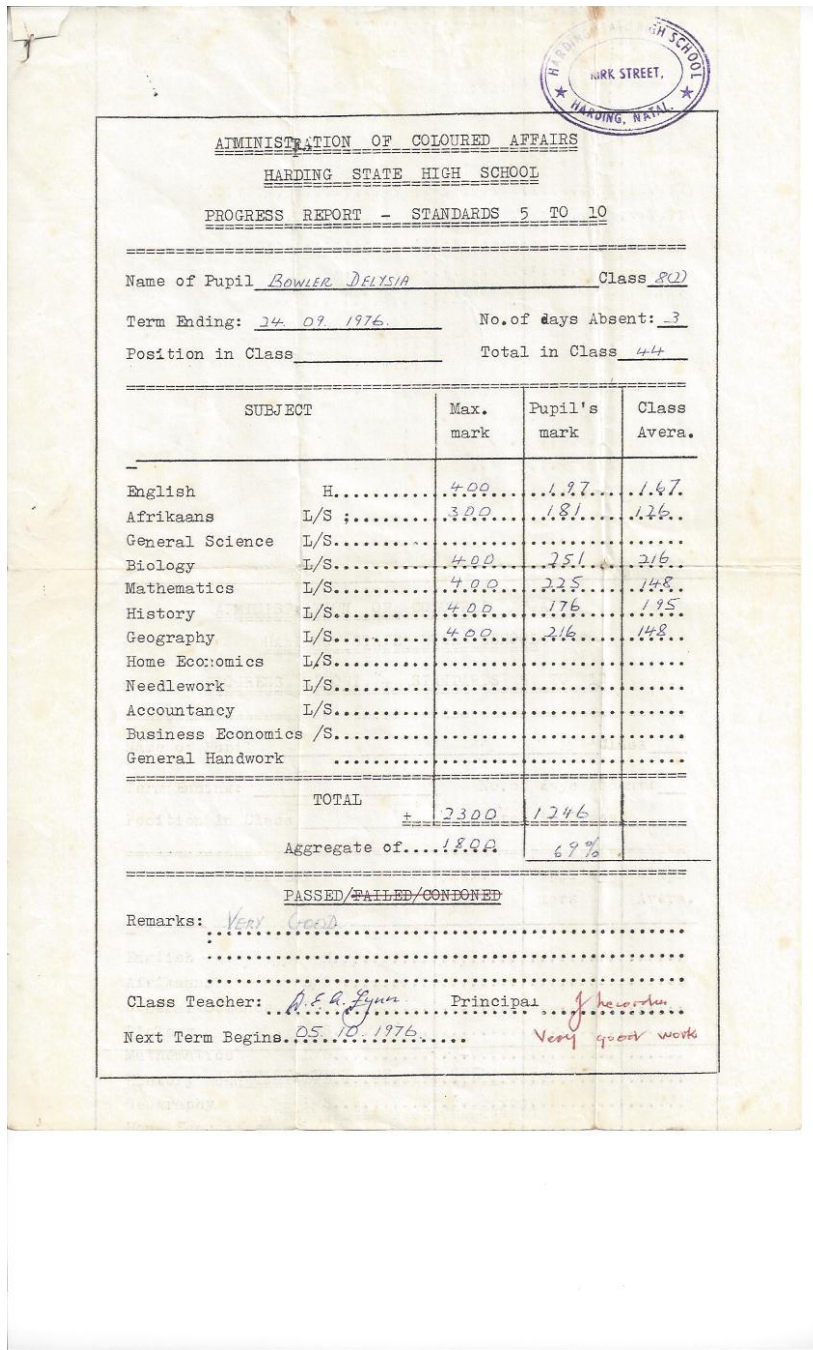 HARDING STATE HIGH SCHOOL
KIRK STREET,
HARDING, NATAL.
ADMINISTRATION OF COLOURED AFFAIRS
HARDING STATE HIGH SCHOOL
PROGRESS REPORT - STANDARDS 5 TO 10
Name of Pupil BOWLER DELYSIA Class 8(2)
Term Ending: 24. 09. 1976. No.of days Absent: 3
Position in Class Total in Class 44
SUBJECT Max. mark Pupil's mark Class Avera.
English H. 400 197 167
Afrikaans L/S : 300 181 126
General Science L/S
Biology L/S 400 251 216
Mathematics L/S 400 225 148
History L/S 400 176 195
Geography L/S 400 216 148
Home Economics L/S
Needlework L/S
Accountancy L/S
Business Economics /S
General Handwork
TOTAL ± 2300 1246
Aggregate of 1800 69%
PASSED/FAILED/CONDONED
Remarks: VERY GOOD
Class Teacher: D.E.A. Lynn Principal
Next Term Begins 05. 10. 1976. Very good work